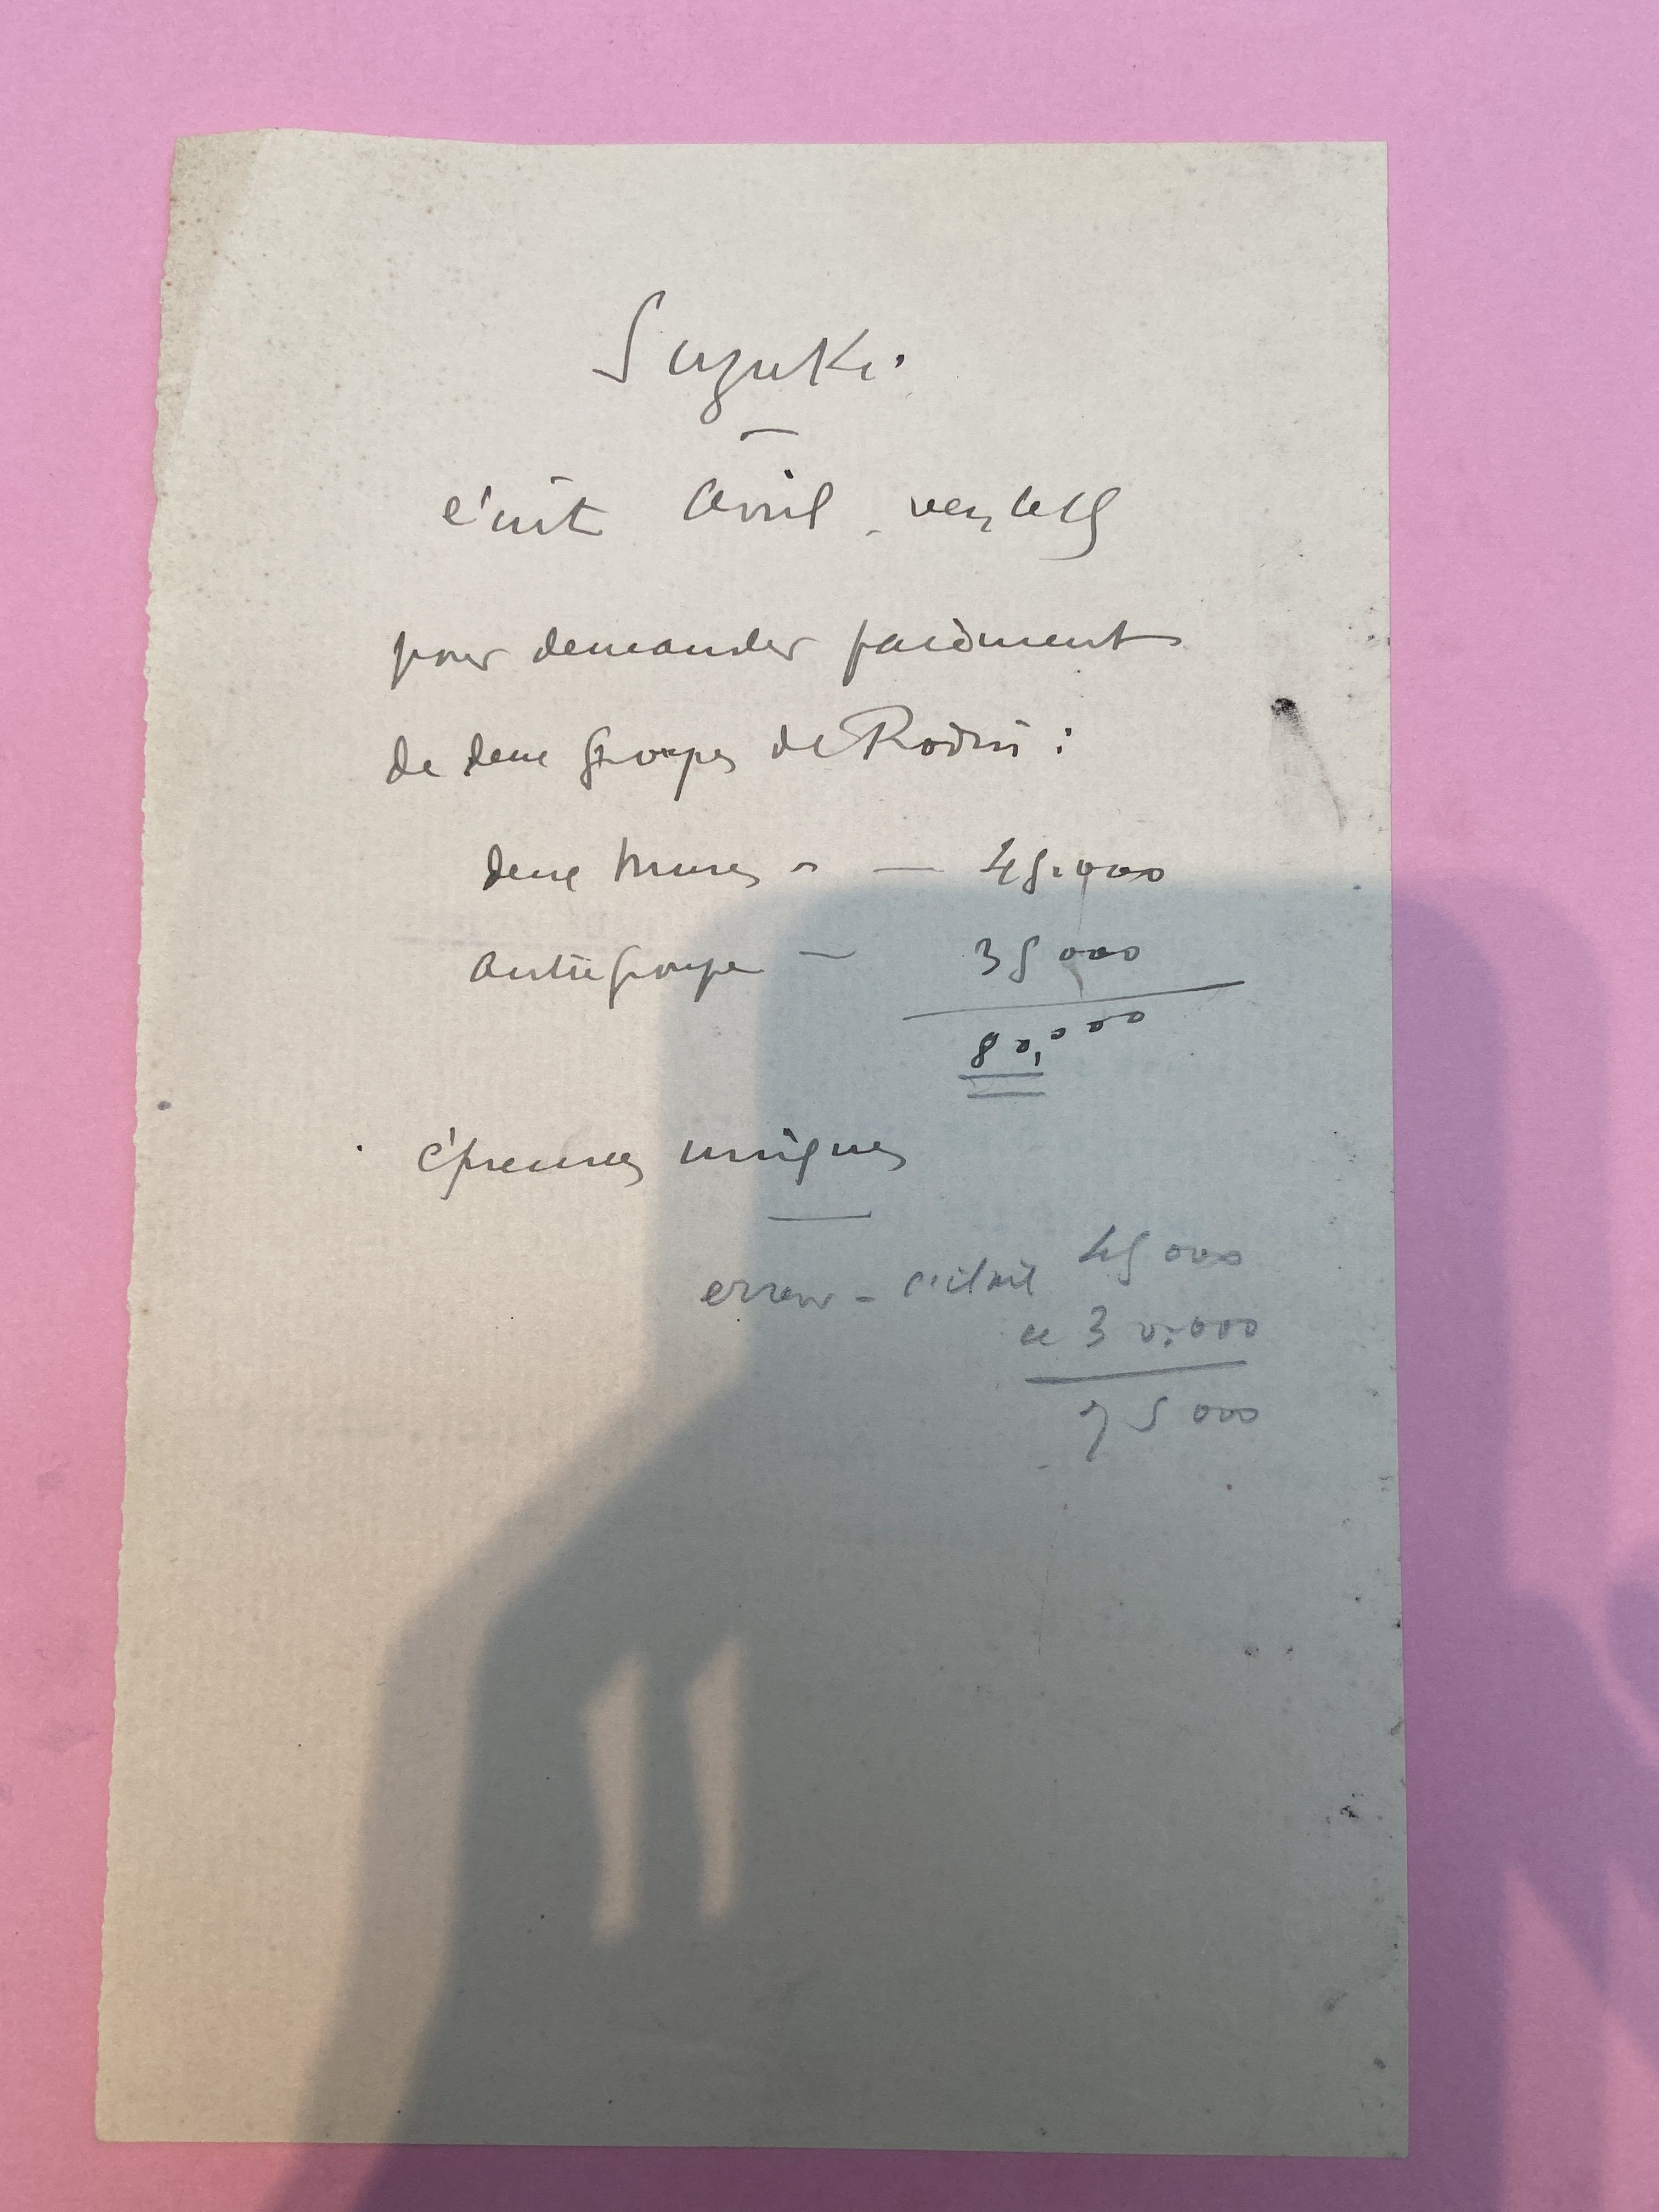 Suzuki.
écrit Avril - vers le 15
pour demander paiement
de deux groupes de Rodin :
deux - — 45.000
autre groupe — 35 000
80.000
épreuves uniques
erreur - c'était 45 000
et 30.000
75 000